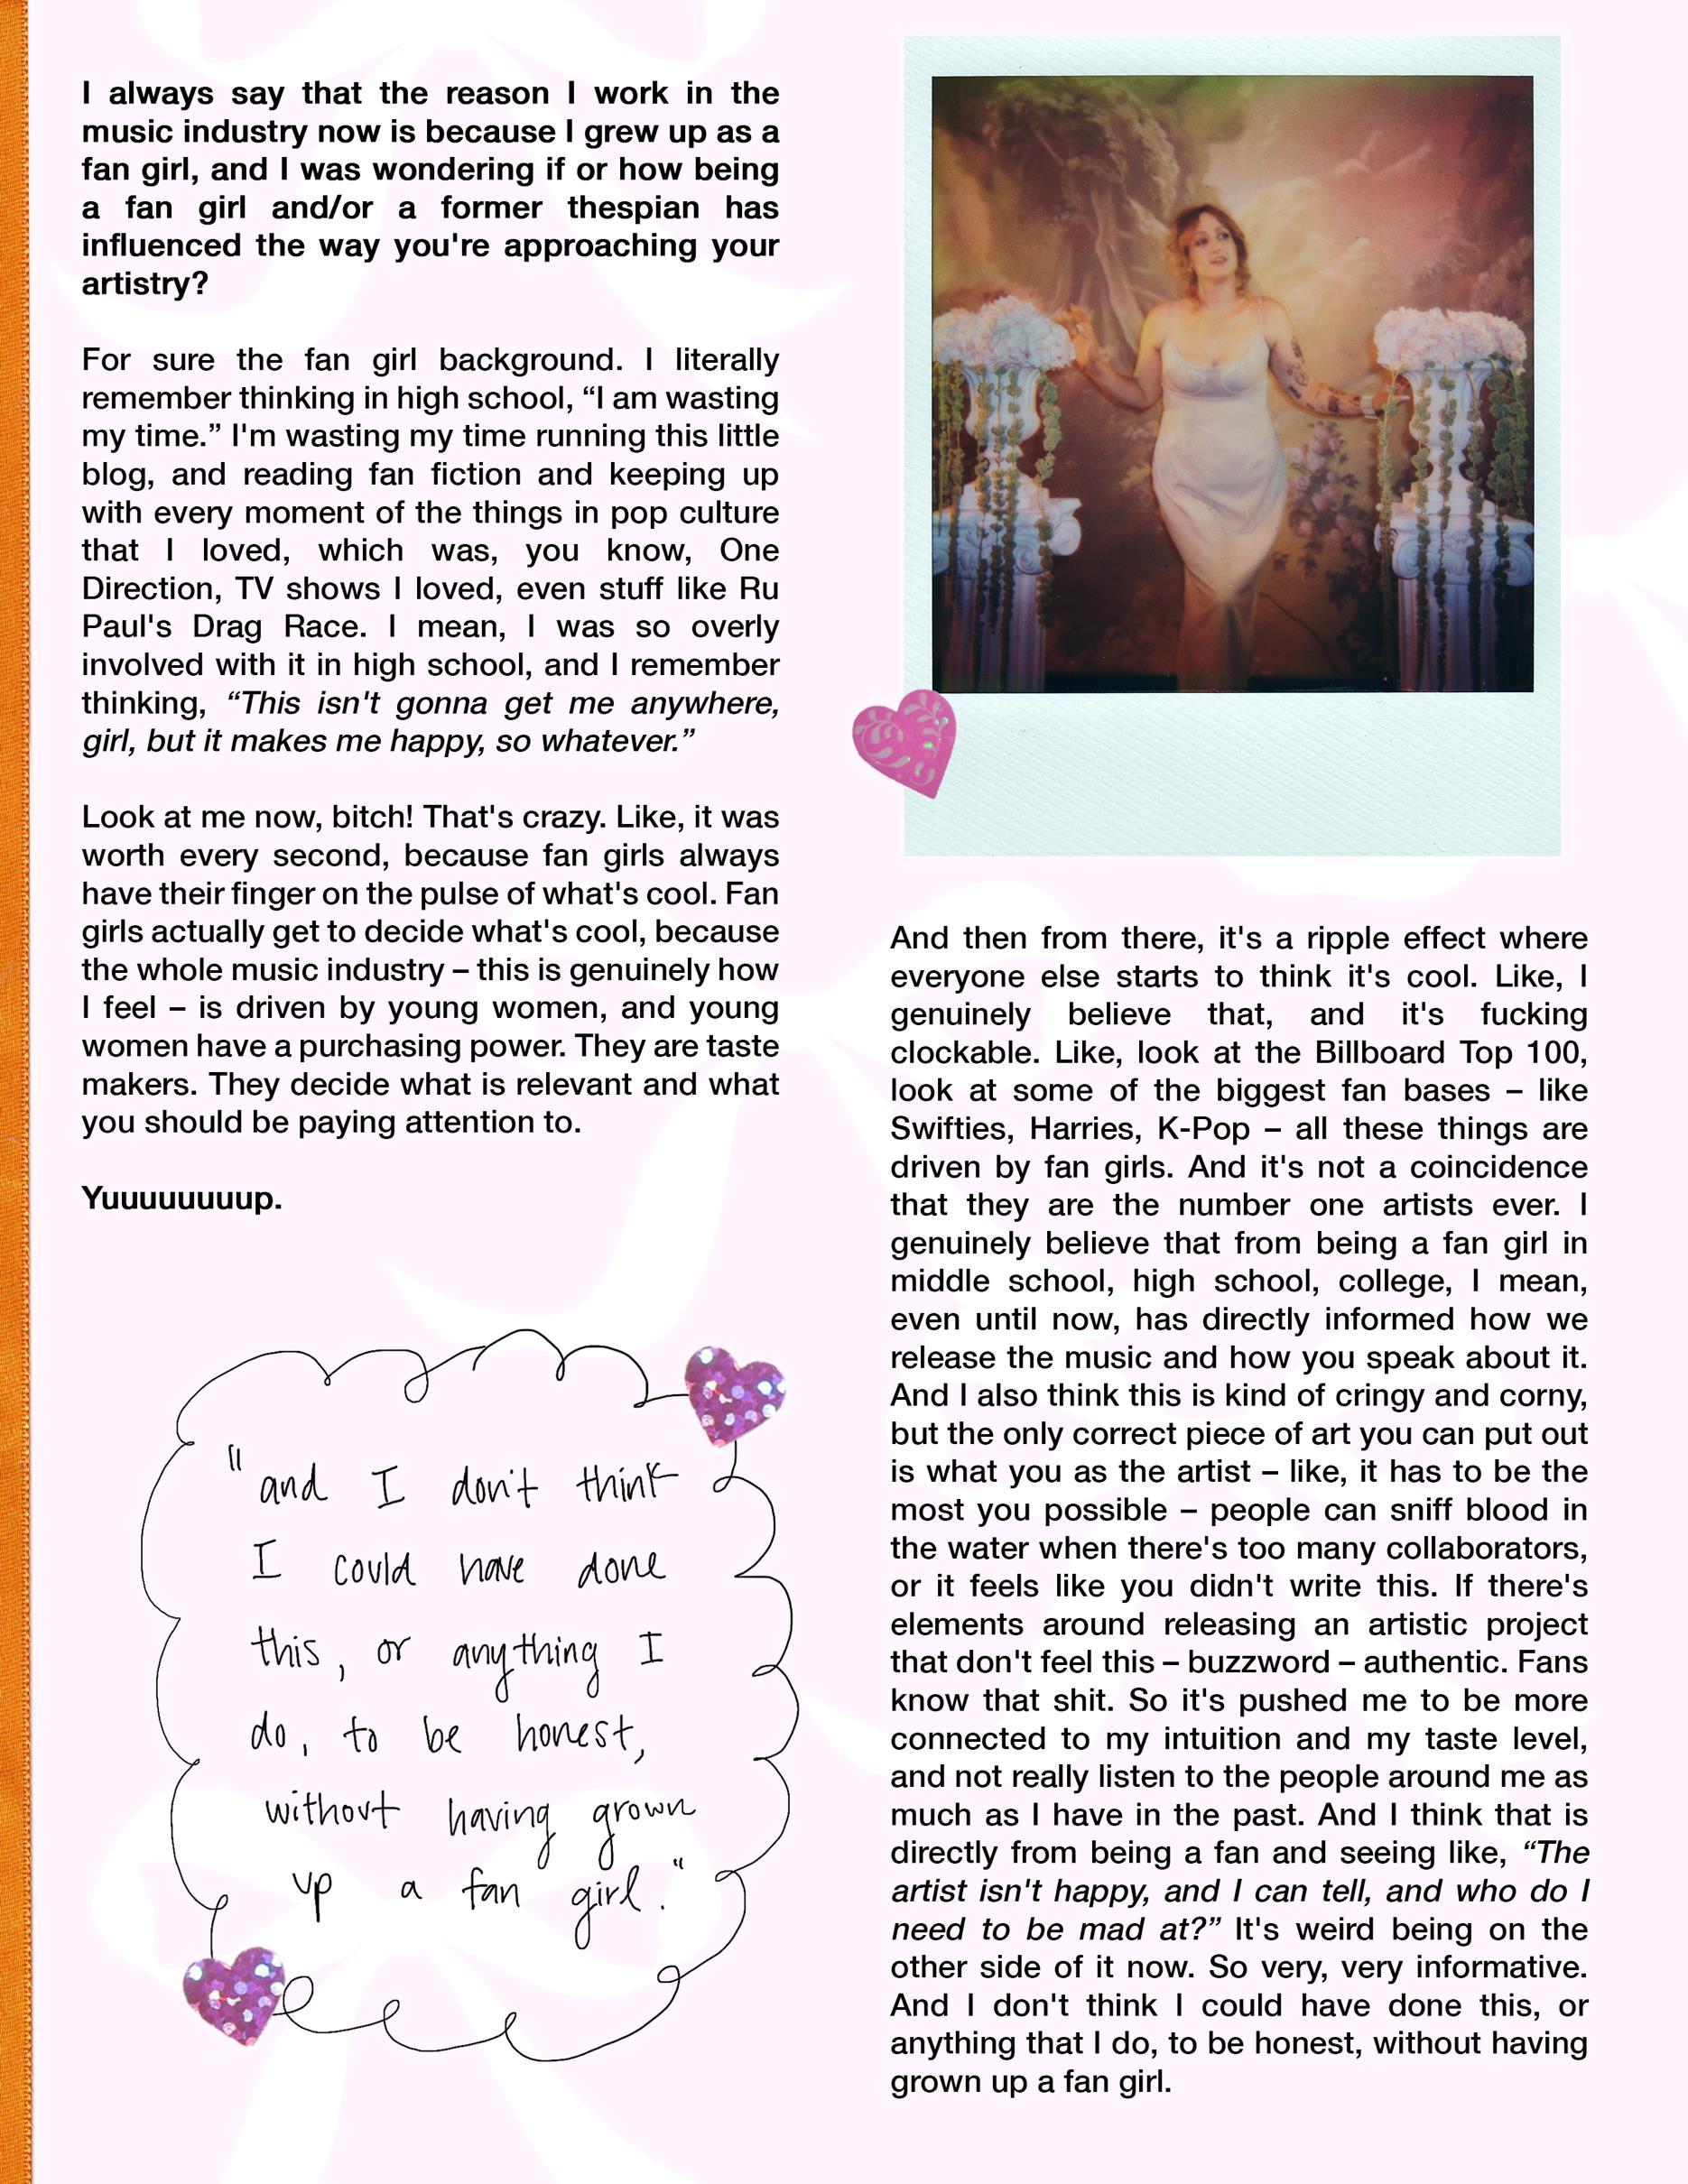 I always say that the reason I work in the
music industry now is because I grew up as a
fan girl, and I was wondering if or how being
a fan girl and/or a former thespian has
influenced the way you're approaching your
artistry?
For sure the fan girl background. I literally
remember thinking in high school, “I am wasting
my time.” I'm wasting my time running this little
blog, and reading fan fiction and keeping up
with every moment of the things in pop culture
that I loved, which was, you know, One
Direction, TV shows I loved, even stuff like Ru
Paul's Drag Race. I mean, I was so overly
involved with it in high school, and I remember
thinking, “This isn't gonna get me anywhere,
girl, but it makes me happy, so whatever.”
Look at me now, bitch! That's crazy. Like, it was
worth every second, because fan girls always
have their finger on the pulse of what's cool. Fan
girls actually get to decide what's cool, because
the whole music industry – this is genuinely how
I feel – is driven by young women, and young
women have a purchasing power. They are taste
makers. They decide what is relevant and what
you should be paying attention to.
Yuuuuuuuup.
"and I don't think
I could have done
this, or anything I
do, to be honest,
without having grown
up a fan girl."
And then from there, it's a ripple effect where
everyone else starts to think it's cool. Like, I
genuinely believe that, and it's fucking
clockable. Like, look at the Billboard Top 100,
look at some of the biggest fan bases – like
Swifties, Harries, K-Pop – all these things are
driven by fan girls. And it's not a coincidence
that they are the number one artists ever. I
genuinely believe that from being a fan girl in
middle school, high school, college, I mean,
even until now, has directly informed how we
release the music and how you speak about it.
And I also think this is kind of cringy and corny,
but the only correct piece of art you can put out
is what you as the artist – like, it has to be the
most you possible – people can sniff blood in
the water when there's too many collaborators,
or it feels like you didn't write this. If there's
elements around releasing an artistic project
that don't feel this – buzzword – authentic. Fans
know that shit. So it's pushed me to be more
connected to my intuition and my taste level,
and not really listen to the people around me as
much as I have in the past. And I think that is
directly from being a fan and seeing like, “The
artist isn't happy, and I can tell, and who do I
need to be mad at?” It's weird being on the
other side of it now. So very, very informative.
And I don't think I could have done this, or
anything that I do, to be honest, without having
grown up a fan girl.